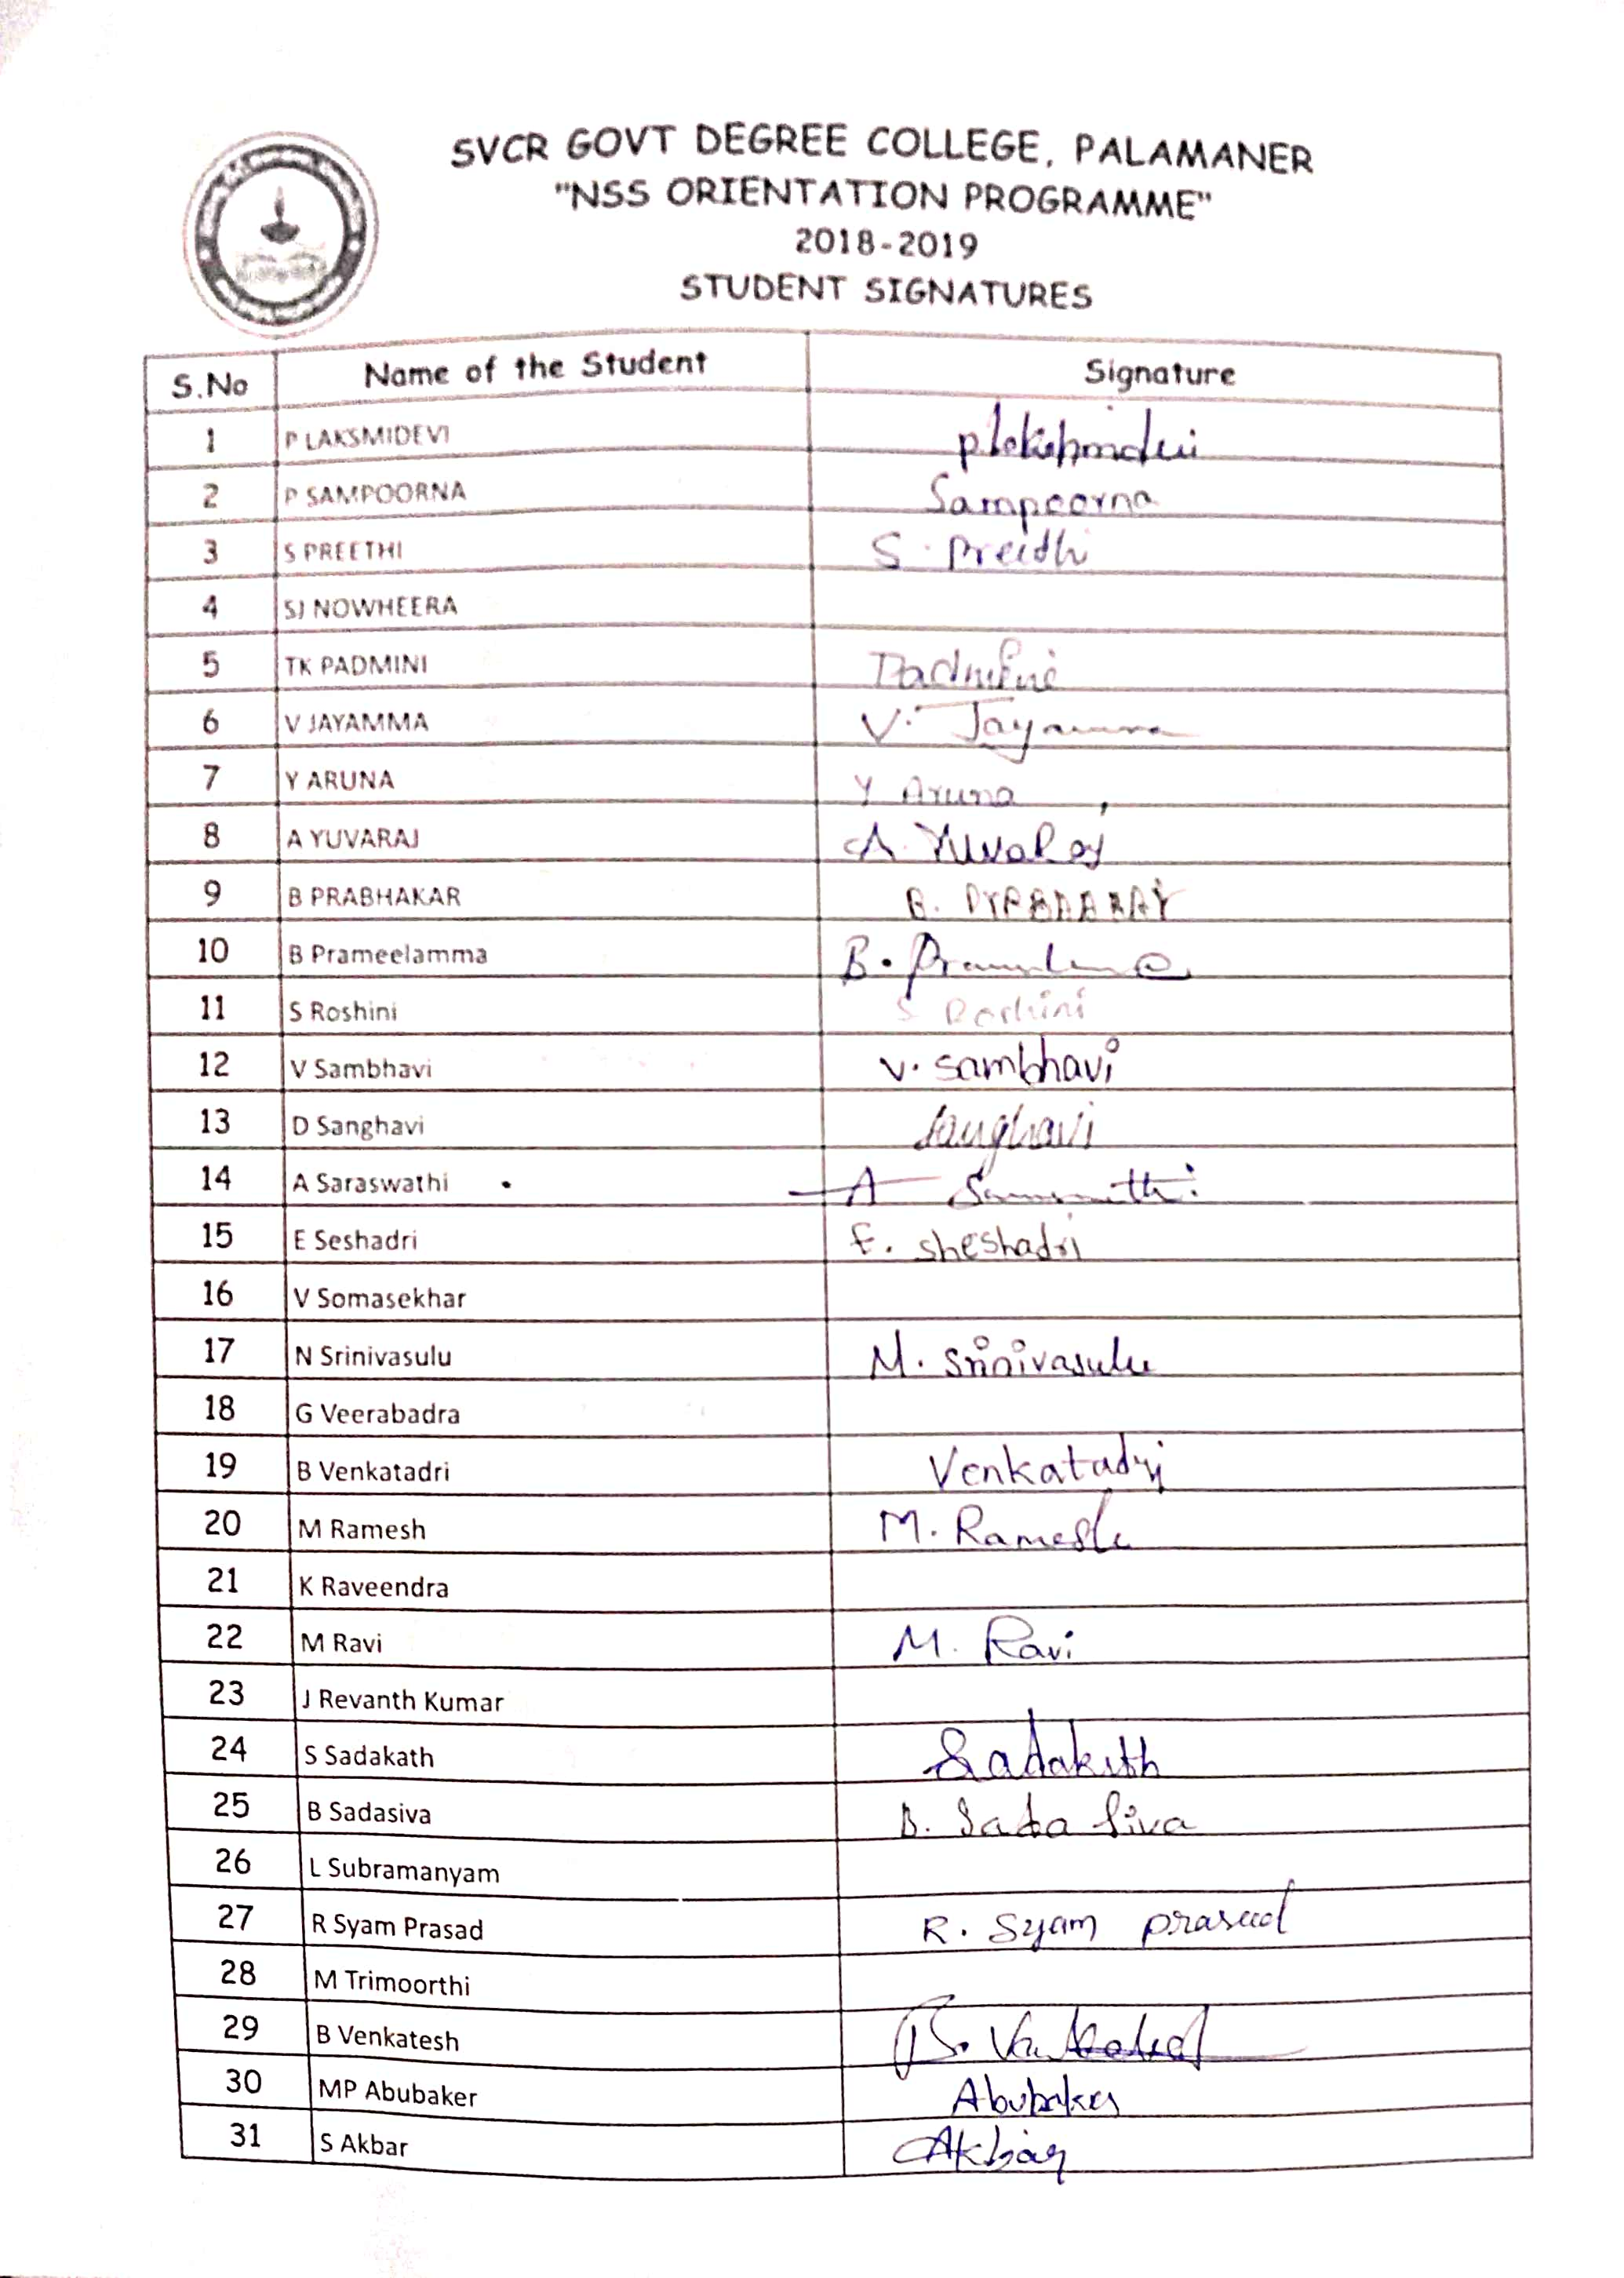 SVCR GOVT DEGREE COLLEGE, PALAMANER
"NSS ORIENTATION PROGRAMME"
2018-2019
STUDENT SIGNATURES
S.No Name of the Student Signature
1 P LAKSMIDEVI P lakshmidevi
2 P SAMPOORNA Sampoorna
3 S PREETHI S. Preidhi
4 SJ NOWHEERA
5 TK PADMINI Padmini
6 V JAYAMMA V. Jayamma
7 Y ARUNA Y Aruna
8 A YUVARAJ A. Yuvaraj
9 B PRABHAKAR B.
10 B Prameelamma B.
11 S Roshini S Roshini
12 V Sambhavi V. Sambhavi
13 D Sanghavi Sanghavi
14 A Saraswathi A
15 E Seshadri E. Sheshadri
16 V Somasekhar
17 N Srinivasulu M. Srinivasulu
18 G Veerabadra
19 B Venkatadri Venkatadri
20 M Ramesh M. Ramesh
21 K Raveendra
22 M Ravi M. Ravi
23 J Revanth Kumar
24 S Sadakath Sadakath
25 B Sadasiva B. Sada Siva
26 L Subramanyam
27 R Syam Prasad R. Syam prasad
28 M Trimoorthi
29 B Venkatesh B.
30 MP Abubaker Abubaker
31 S Akbar Akbar